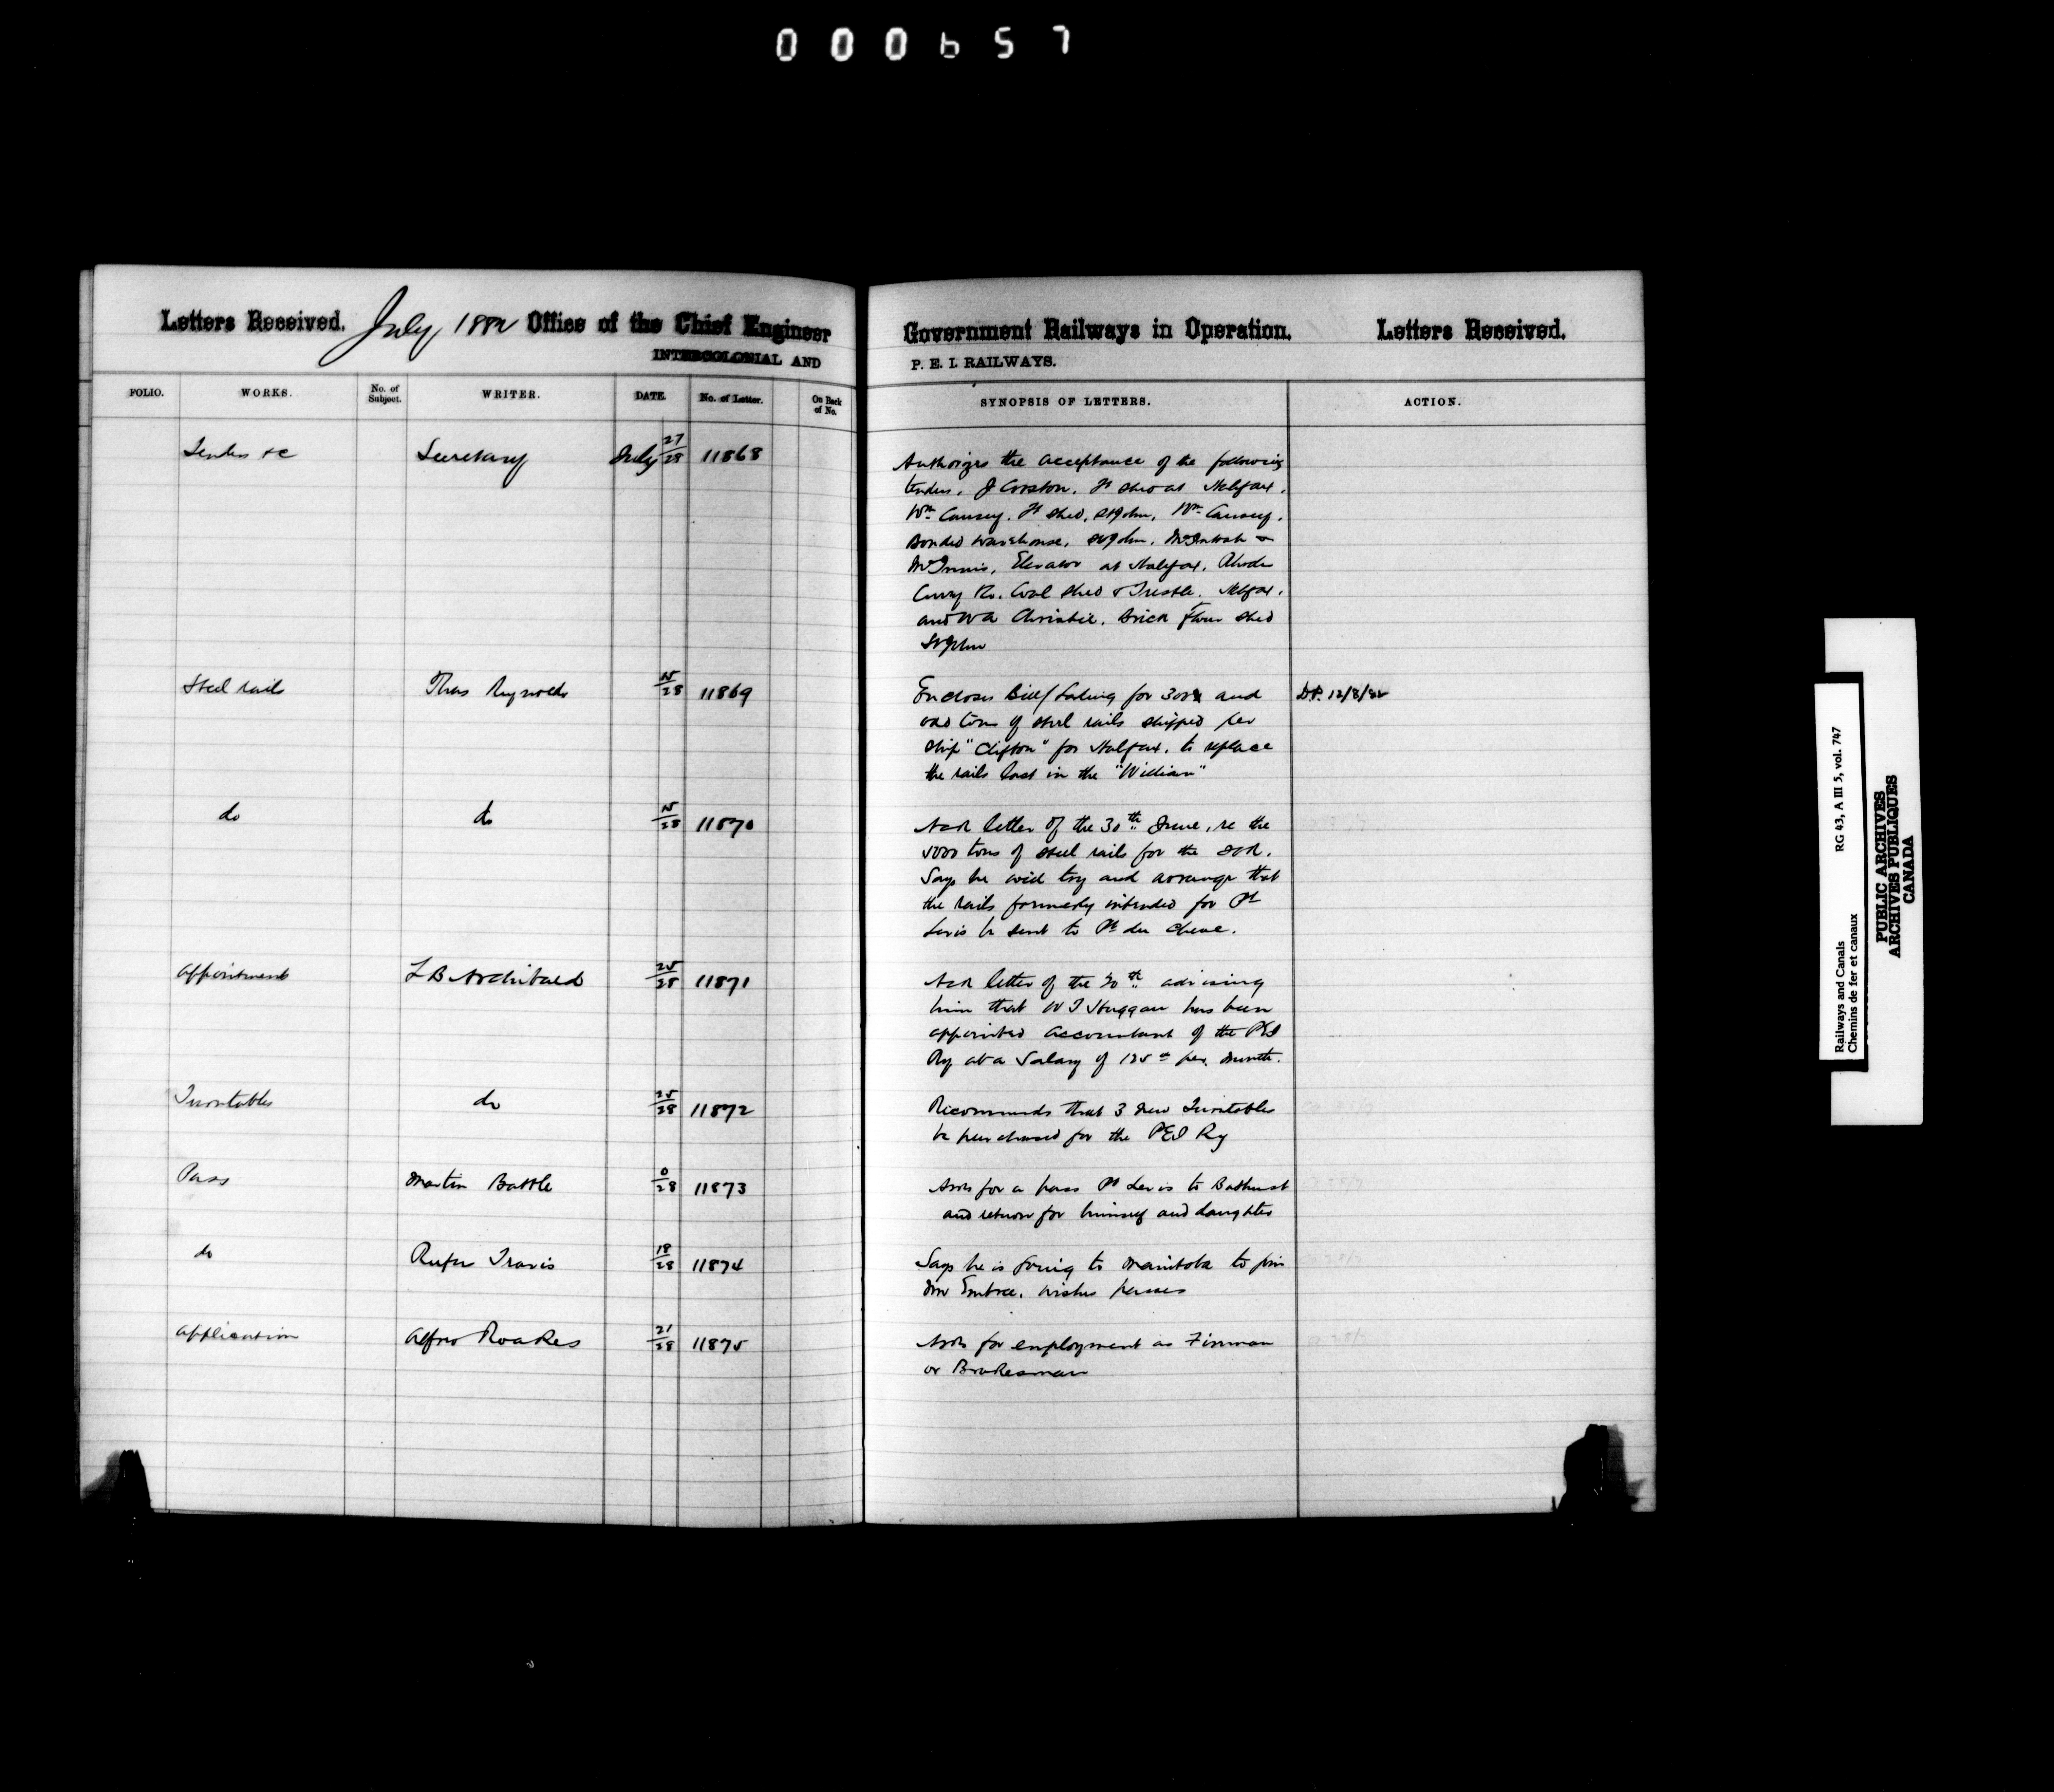 000657
Letters Received. July 1882 Office of the Chief Engineer
INTERCOLONIAL AND
Government Railways in Operation. Letters Received.
P. E. I. RAILWAYS.
FOLIO. WORKS. No. of Subject. WRITER. DATE. No. of Letter. On Back of No.
SYNOPSIS OF LETTERS. ACTION.
Tenders &c Secretary July 27/28 11868
Authorizes the acceptance of the following
tenders. J Corston. Ft Shed at Halifax.
Wm Causey. Ft Shed, St John, Wm Causey.
Bonded Warehouse, St John. McIntosh &
McInnis, Elevator at Halifax. Rhodes
Curry Co. Coal Shed & Trestle. Halifax.
and W A Christie. Brick Flour Shed
St John
Steel rails Thos Reynolds 15/28 11869
Encloses Bill/Lading for and
tons of steel rails shipped per
Ship "Clifton" for Halifax. to replace
the rails lost in the "William"
DP. 12/8/82
do do 15/28 11870
Ack letter of the 30th June, re the
5000 tons of steel rails for the ICR.
Says he will try and arrange that
the rails formerly intended for Pt
Levis be sent to Pt du Chene.
Appointment L B Archibald 25/28 11871
Ack letter of the 20th advising
him that W T Huggan has been
appointed accountant of the PEI
Ry at a Salary of per month.
Turntables do 25/28 11872
Recommends that 3 new Turntables
be purchased for the PEI Ry
Pass Martin Battle 0/28 11873
Asks for a pass Pt Levis to Bathurst
and return for himself and daughter
do Rufus Travis 18/28 11874
Says he is going to Manitoba to join
Mr Embree. wishes passes
Application Alfred Roakes 21/28 11875
Asks for employment as Fireman
or Brakesman
Railways and Canals RG 43, A III 5, vol. 747
Chemins de fer et canaux
PUBLIC ARCHIVES
ARCHIVES PUBLIQUES
CANADA